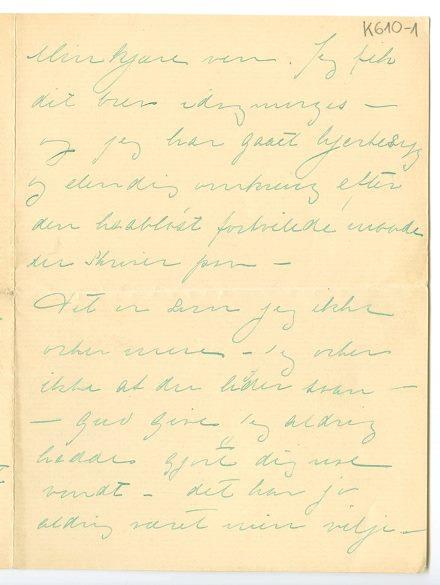 K610-1
Min kjære ven. Jeg fik
dit brev idag morges —
og jeg har gaaet hjertesyg
og elendig omkring efter
den haabløst fortvilede maade
du skriver paa —
Det er som jeg ikke
orker mere — jeg orker
ikke at du lider saan —
— gud give jeg aldrig
hadde gjort dig noe
vondt — det har jo
aldrig været min vilje —